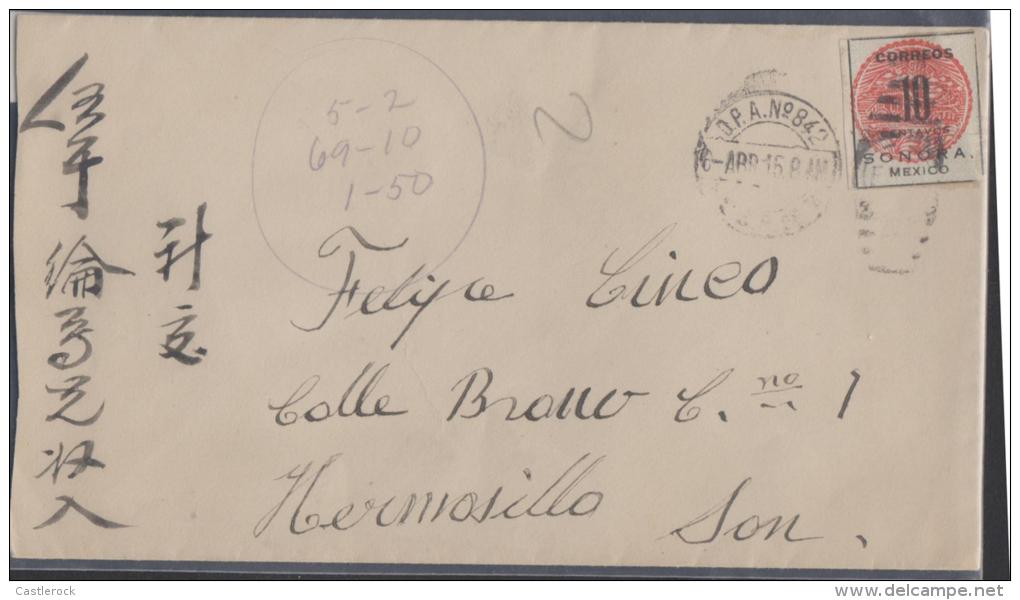 5-2
69-10
1-50
O.P.A. Nº 842
6-ABR 15 8 AM
CORREOS
10
CENTAVOS
SONORA.
MEXICO
Felipe Cinco
Calle Bravo C. no 1
Hermosillo Son.
收入
Castlerock
delcampe.net